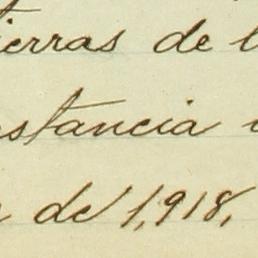 ierras de l
estancia
de 1,918,